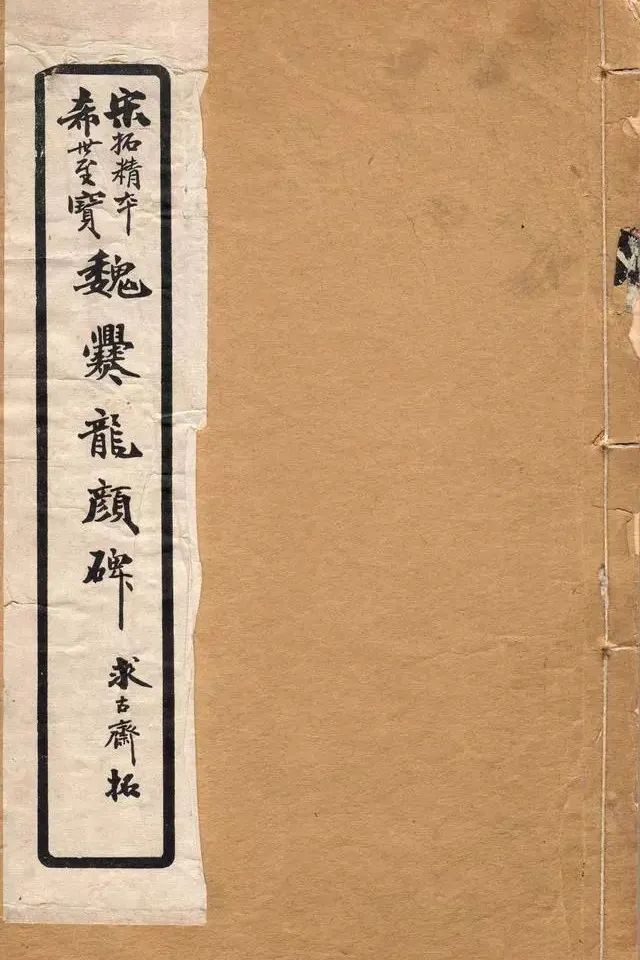 宋拓精本
希世至寶
魏爨龍顏碑
求古齋拓